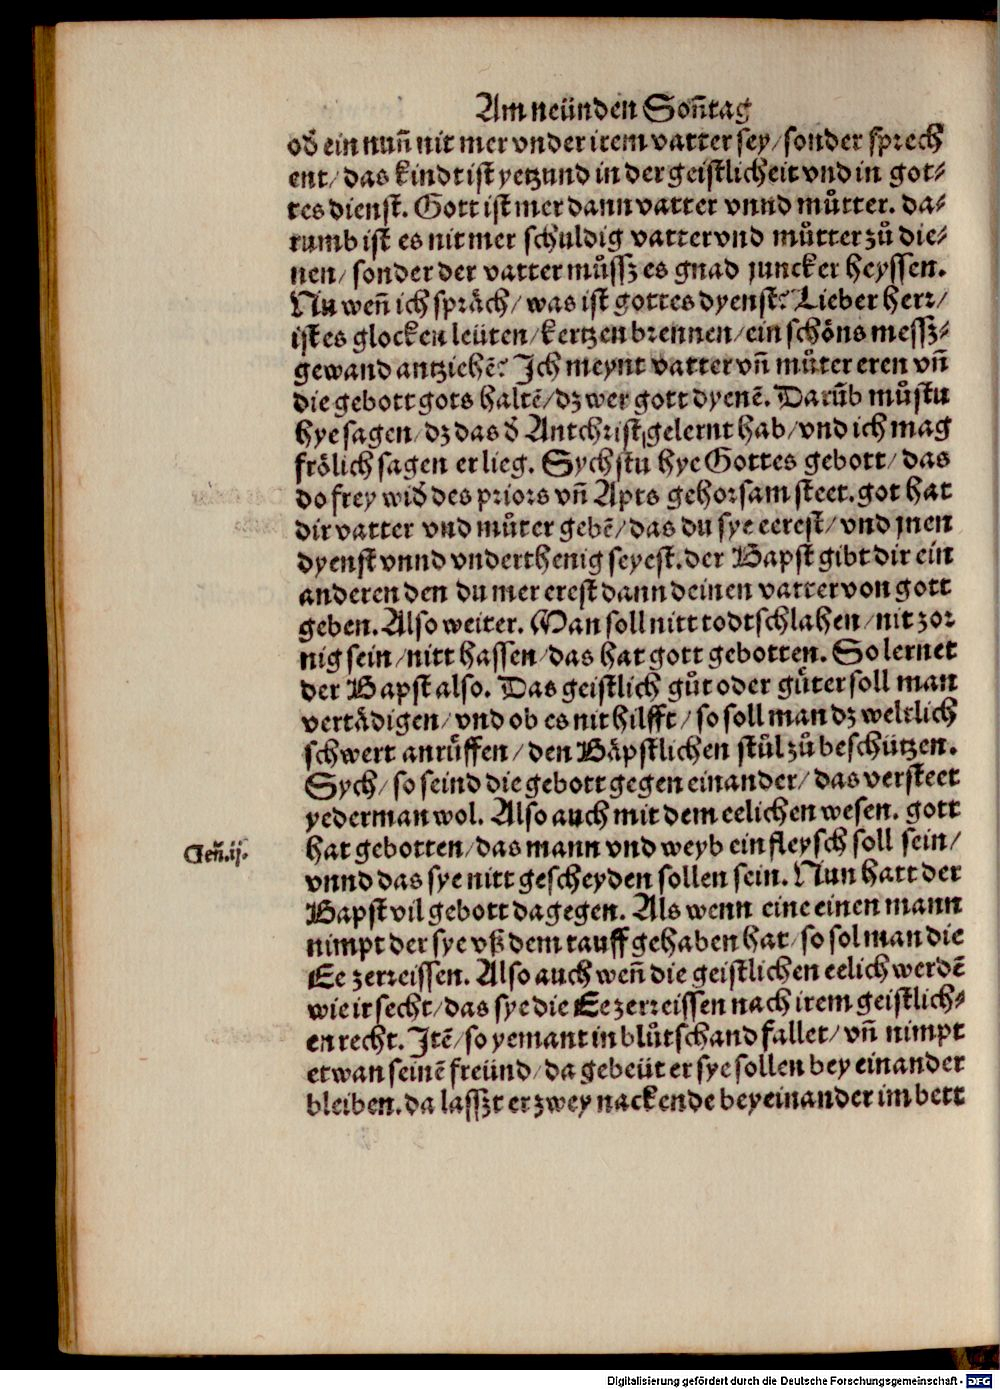 Am neünden Son̄tag
od̕ ein nun̄ nit mer vnder irem vatter sey/ sonder sprech
ent/ das kindt ist yetzund in der geistlicheit vnd in got⸗
tes dienst. Gott ist mer dann vatter vnnd můtter. da⸗
rumb ist es nit mer schuldig vatter vnd můtter zů die⸗
nen/ sonder der vatter můssz es gnad juncker heyssen.
Nu wen̄ ich spräch/ was ist gottes dyenst? Lieber herr/
ist es glocken leüten/ kertzen brennen/ ein schöns messz⸗
gewand antziehē? Ich meynt vatter vn̄ můter eren vn̄
die gebott gots haltē/ dz wer gott dyenē. Darūb můstu
hye sagen/ dz das d̕ Antchrist gelernt hab/ vnd ich mag
frölich sagen er lieg. Sychstu hye Gottes gebott/ das
do frey wid̕ des priors vn̄ Apts gehorsam steet. got hat
dir vatter vnd můter gebē/ das du sye eerest/ vnd jnen
dyenst vnnd vnderthenig seyest. der Bapst gibt dir ein
anderen den du mer erest dann deinen vatter von gott
geben. Also weiter. Man soll nitt todtschlahen/ nit zor
nig sein/ nitt hassen/ das hat gott gebotten. So lernet
der Bapst also. Das geistlich gůt oder güter soll man
vertädigen/ vnd ob es nit hilfft/ so soll man dz weltlich
schwert anrüffen/ den Bäpstlichen stůl zů beschützen.
Sych/ so seind die gebott gegen einander/ das versteet
yederman wol. Also auch mit dem eelichen wesen. gott
hat gebotten/ das mann vnd weyb ein fleysch soll sein/
Gen̄.ij.
vnnd das sye nitt gescheyden sollen sein. Nun hatt der
Bapst vil gebott dagegen. Als wenn eine einen mann
nimpt der sye vß dem tauff gehaben hat/ so sol man die
Ee zerreissen. Also auch wen̄ die geistlichen eelich werdē
wie ir secht/ das sye die Ee zerreissen nach irem geistlich⸗
en recht. Itē/ so yemant in blůtschand fallet/ vn̄ nimpt
etwan seinē freünd/ da gebeüt er sye sollen bey einander
bleiben. da lasszt er zwey nackende bey einander im bett
Digitalisierung gefördert durch die Deutsche Forschungsgemeinschaft - DFG